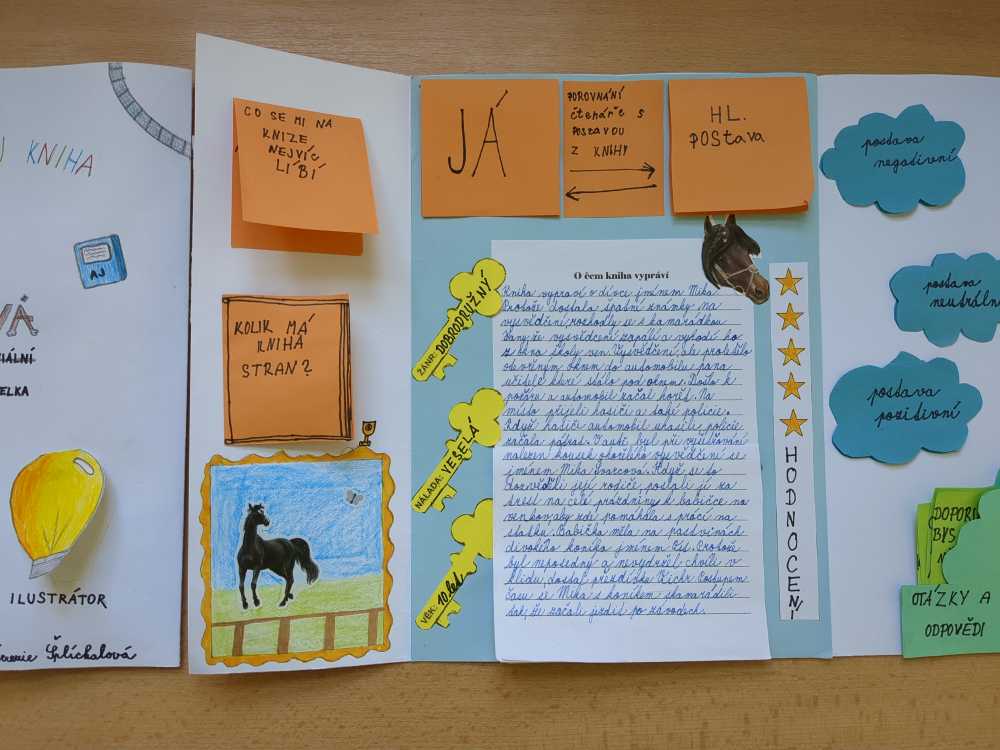 KNIHA
AJ
VÁ
ELKA
ILUSTRÁTOR
Šplíchalová
CO SE MI NA
KNIZE
NEJVÍC
LÍBÍ
KOLIK MÁ
KNIHA
STRAN?
JÁ
POROVNÁNÍ
čtenáře s
POSTAVOU
Z KNIHY
HL.
POStava
ŽÁNR: DOBRODRUŽNÝ
NÁLADA: VESELÁ
VĚK: 10 let
O čem kniha vypráví
Kniha vypraví o dívce jménem Mika
Protože dostala špatné známky na
vysvědčení, rozhodly se s kamarádkou
že vysvědčení zapálí a vyhodí ho
z okna školy ven. Vysvědčení, ale proletělo
otevřeným oknem do automobilu pana
učitele které stálo pod oknem. Došlo k
požáru a automobil začal hořet. Na
místo přijeli hasiči a také policie.
Když hasiči automobil uhasili policie
začala pátrat. byl při vyšetřování
nalezen kousek ohořelého vysvědčení se
jménem Mika Švarcová. Když se to
dozvěděli její rodiče poslali jí za
trest na celé prázdniny k babičce na
venkov, aby zde pomáhala s prací na
statku. Babička měla na pastvinách
divokého koníka jménem Est. Protože
byl neposedný a nevydržel chvíli v
klidu, dostal přezdívku Vichr. Postupem
času se Mika s koníkem skamarádili
tak, že začali jezdit po závodech.
HODNOCENÍ
postava
negativní
postava
neutrální
postava
pozitivní
DOPORU
BYS
OTÁZKY A
ODPOVĚDI